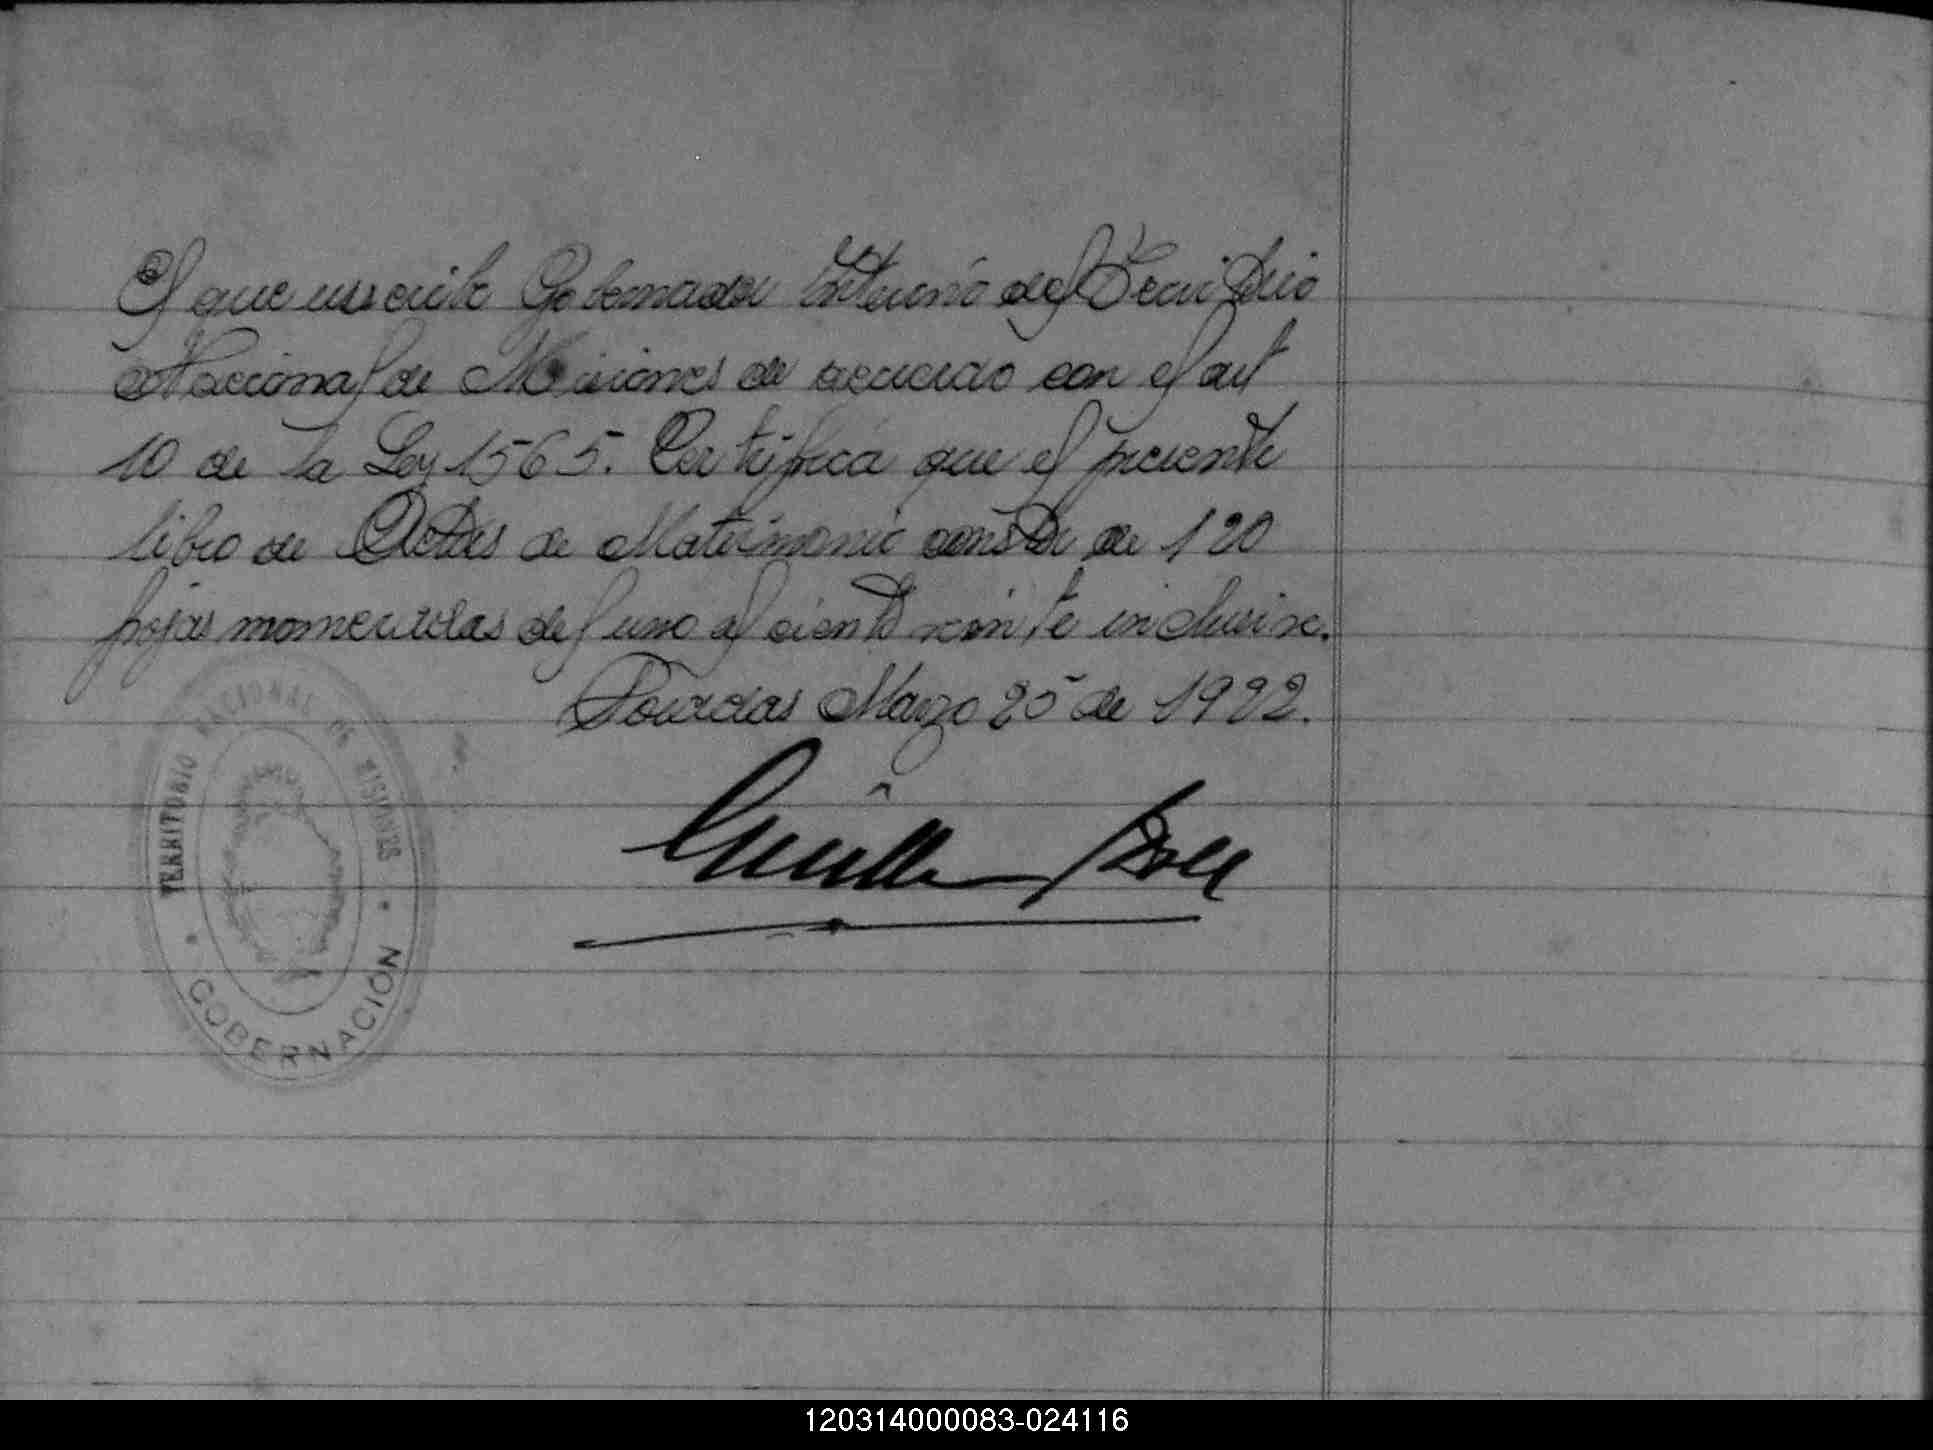 El que suscribe Gobernador Interino del Territorio
Nacional de Misiones de acuerdo con el art
10 de la Ley 1565. Certifica que el presente
libro de Actas de Matrimonio consta de 120
fojas nomeradas del uno al ciento veinte inclusive.
Posadas Marzo 25 de 1922.
TERRITORIO NACIONAL DE MISIONES
GOBERNACIÓN
120314000083-024116